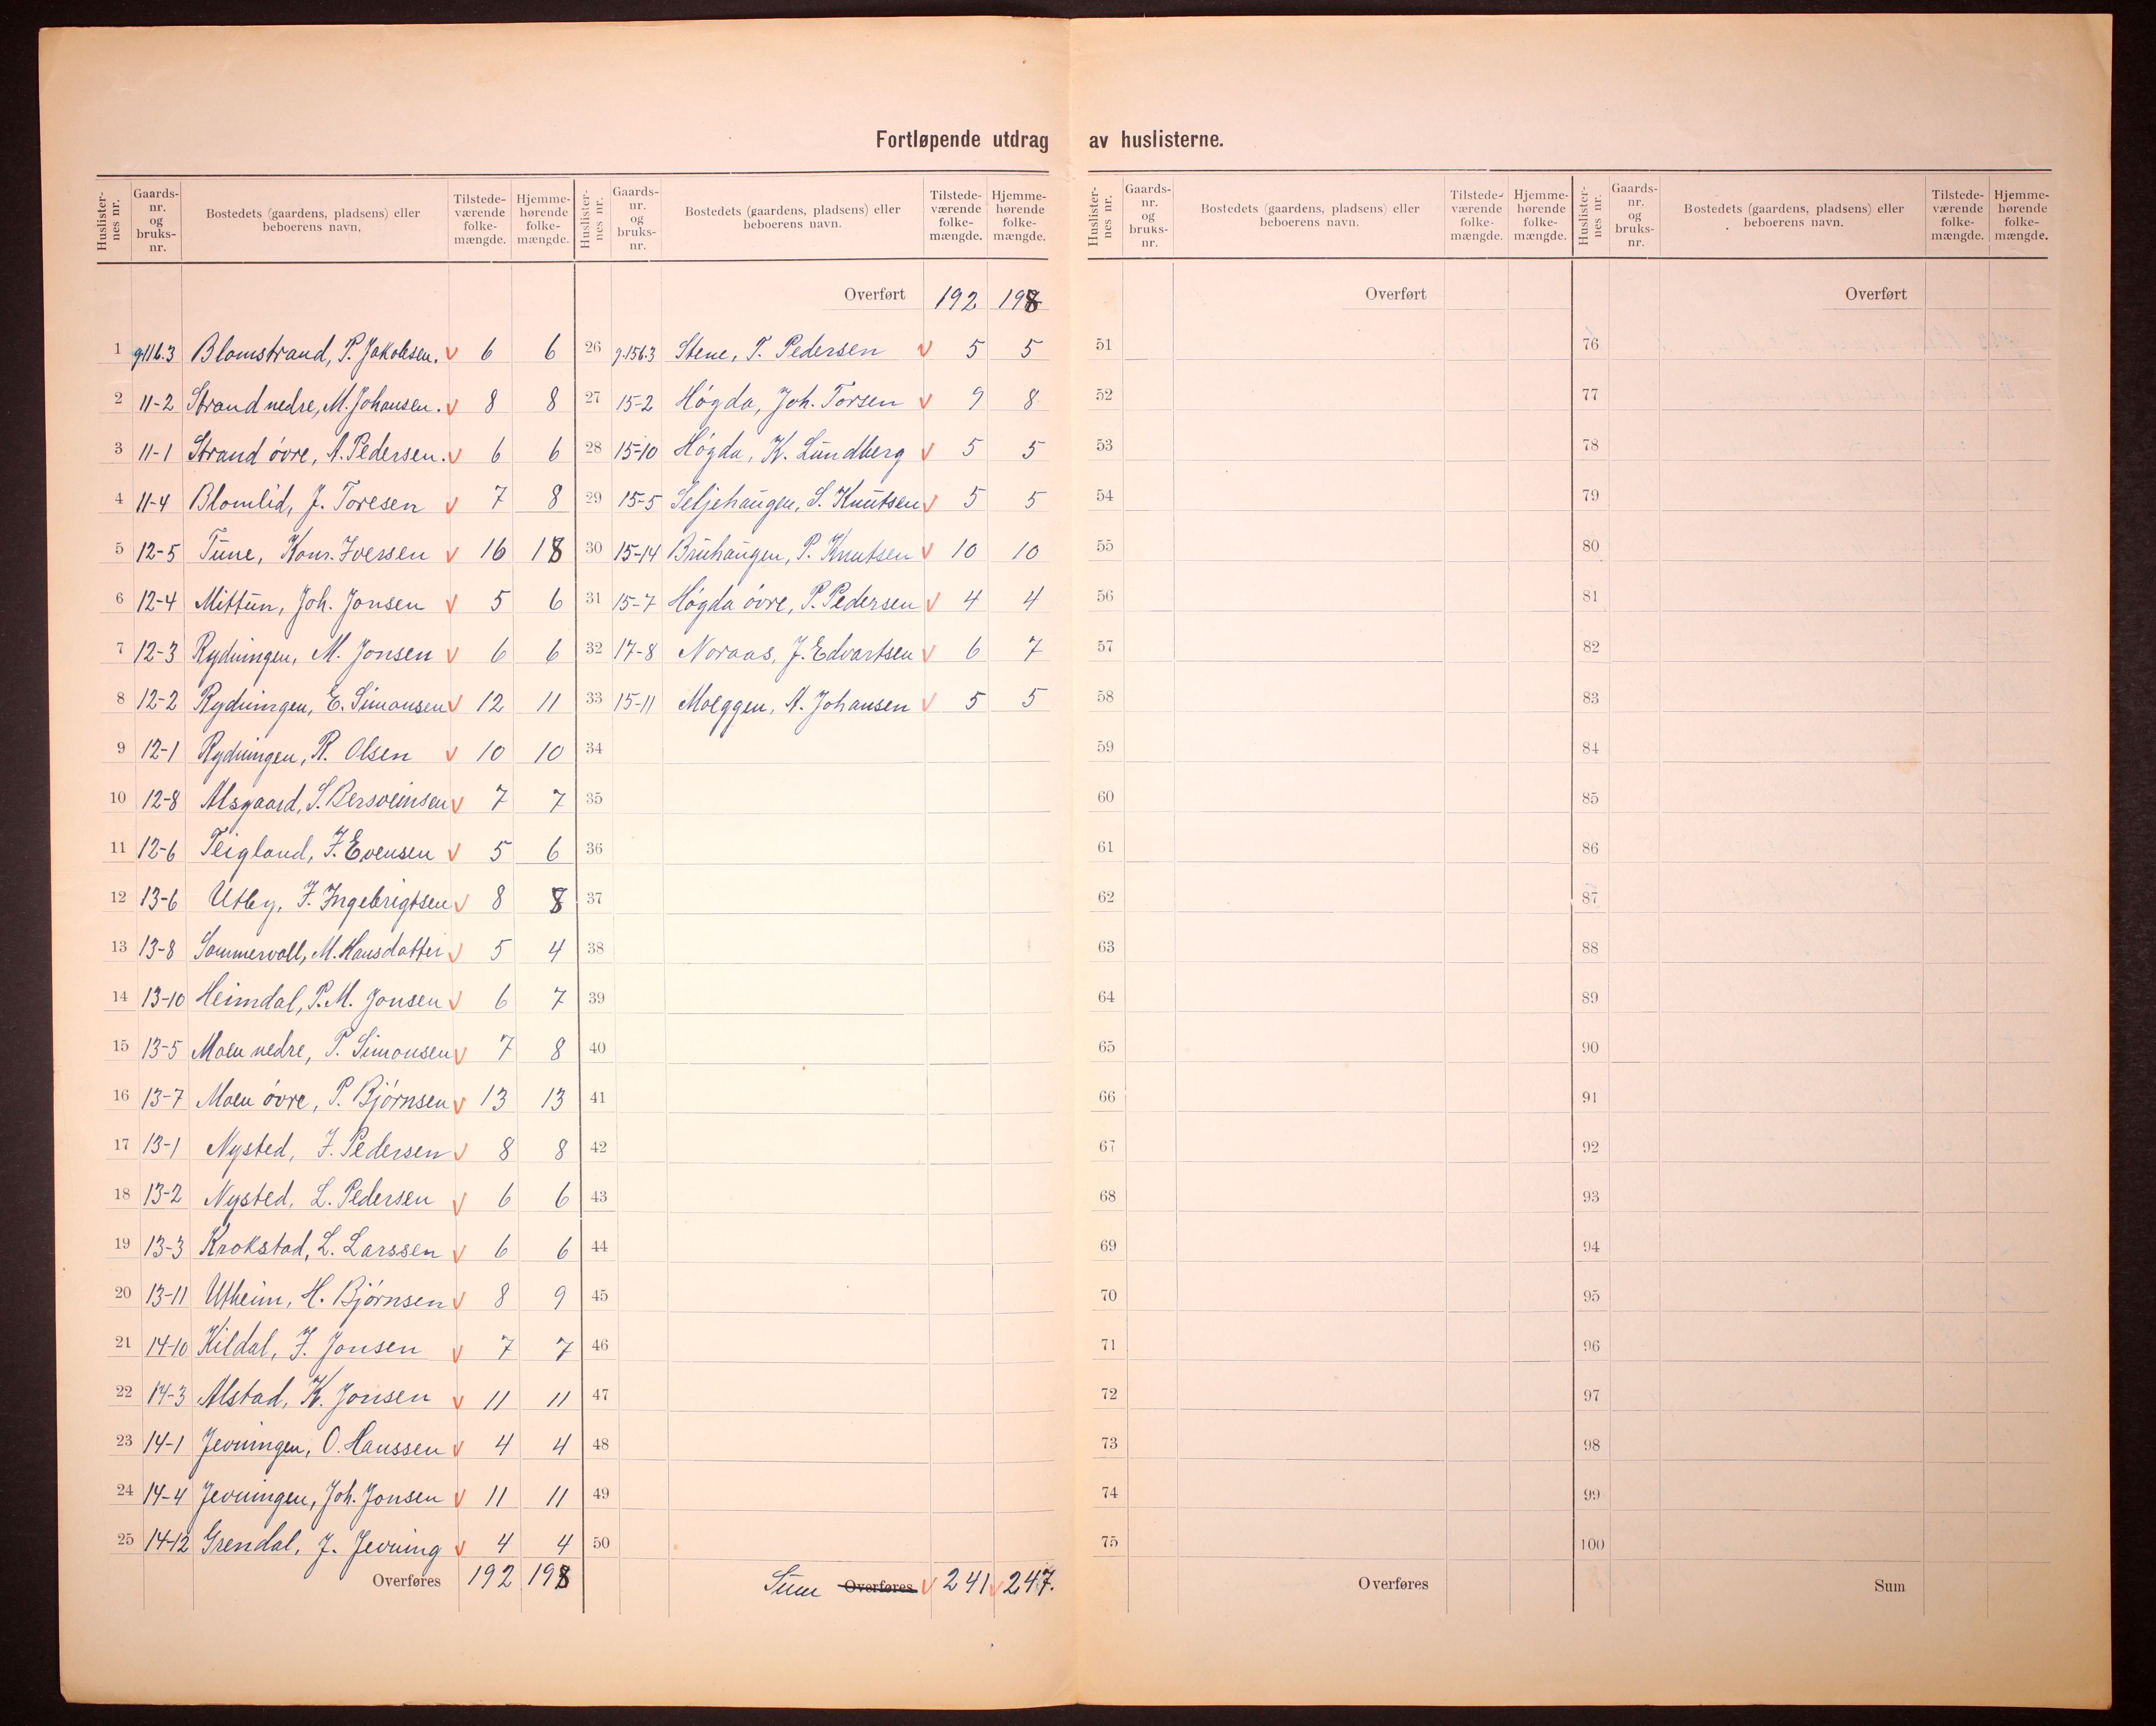 Fortløpende utdrag av huslisterne.
Huslister-nes nr. Gaards-nr. og bruks-nr. Bostedets (gaardens, pladsens) eller beboerens navn, Tilstede-værende folke-mængde. Hjemme-hørende folke-mængde.
1 g11b.3 Blomstrand, P. Jakobsen. v 6 6
2 11-2 Strand nedre, M. Johansen. v 8 8
3 11-1 Strand övre, A. Pedersen. v 6 6
4 11-4 Blomlid, J. Toresen v 7 8
5 12-5 Tune, Konr. Iversen v 16 18
6 12-4 Mittun, Joh. Jonsen v 5 6
7 12-3 Rydningen, M. Jonsen v 6 6
8 12-2 Rydningen, E. Simonsen v 12 11
9 12-1 Rydningen, R. Olsen v 10 10
10 12-8 Alsgaard, S. Bersveinsen v 7 7
11 12-6 Teigland, J. Evensen v 5 6
12 13-6 Utby, J. Ingebrigtsen v 8 8
13 13-8 Sommervoll, M. Hansdatter v 5 4
14 13-10 Heimdal, P. M. Jonsen v 6 7
15 13-5 Moen nedre, P. Simonsen v 7 8
16 13-7 Moen övre, P. Björnsen v 13 13
17 13-1 Nysted, J. Pedersen v 8 8
18 13-2 Nysted, L. Pedersen v 6 6
19 13-3 Krokstad, L. Larssen v 6 6
20 13-11 Utheim, H. Björnsen v 8 9
21 14-10 Kildal, J. Jonsen v 7 7
22 14-3 Alstad, K. Jonsen v 11 11
23 14-1 Jevningen, O. Hanssen v 4 4
24 14-4 Jevningen, Joh. Jonsen v 11 11
25 14-12 Grendal, J. Jevning v 4 4
Overføres 192 198
Huslister-nes nr. Gaards-nr. og bruks-nr. Bostedets (gaardens, pladsens) eller beboerens navn. Tilstede-værende folke-mængde. Hjemme-hørende folke-mængde.
Overført 192 198
26 g.15b.3 Stene, T. Pedersen v 5 5
27 15-2 Högda, Joh. Torsen v 9 8
28 15-10 Högda, K. Lundberg v 5 5
29 15-5 Seljehaugen, S. Knutsen v 5 5
30 15-14 Bruhaugen, P. Knutsen v 10 10
31 15-7 Högda övre, P. Pedersen v 4 4
32 17-8 Noraas, J. Edvartsen v 6 7
33 15-11 Moeggen, A. Johansen v 5 5
34
35
36
37
38
39
40
41
42
43
44
45
46
47
48
49
50
Sum Overføres v 241 v 247.
Huslister-nes nr. Gaards-nr. og bruks-nr. Bostedets (gaardens, pladsens) eller beboerens navn. Tilstede-værende folke-mængde. Hjemme-hørende folke-mængde.
Overført
51
52
53
54
55
56
57
58
59
60
61
62
63
64
65
66
67
68
69
70
71
72
73
74
75
Overføres
Huslister-nes nr. Gaards-nr. og bruks-nr. Bostedets (gaardens, pladsens) eller beboerens navn. Tilstede-værende folke-mængde. Hjemme-hørende folke-mængde.
Overført
76
77
78
79
80
81
82
83
84
85
86
87
88
89
90
91
92
93
94
95
96
97
98
99
100
Sum